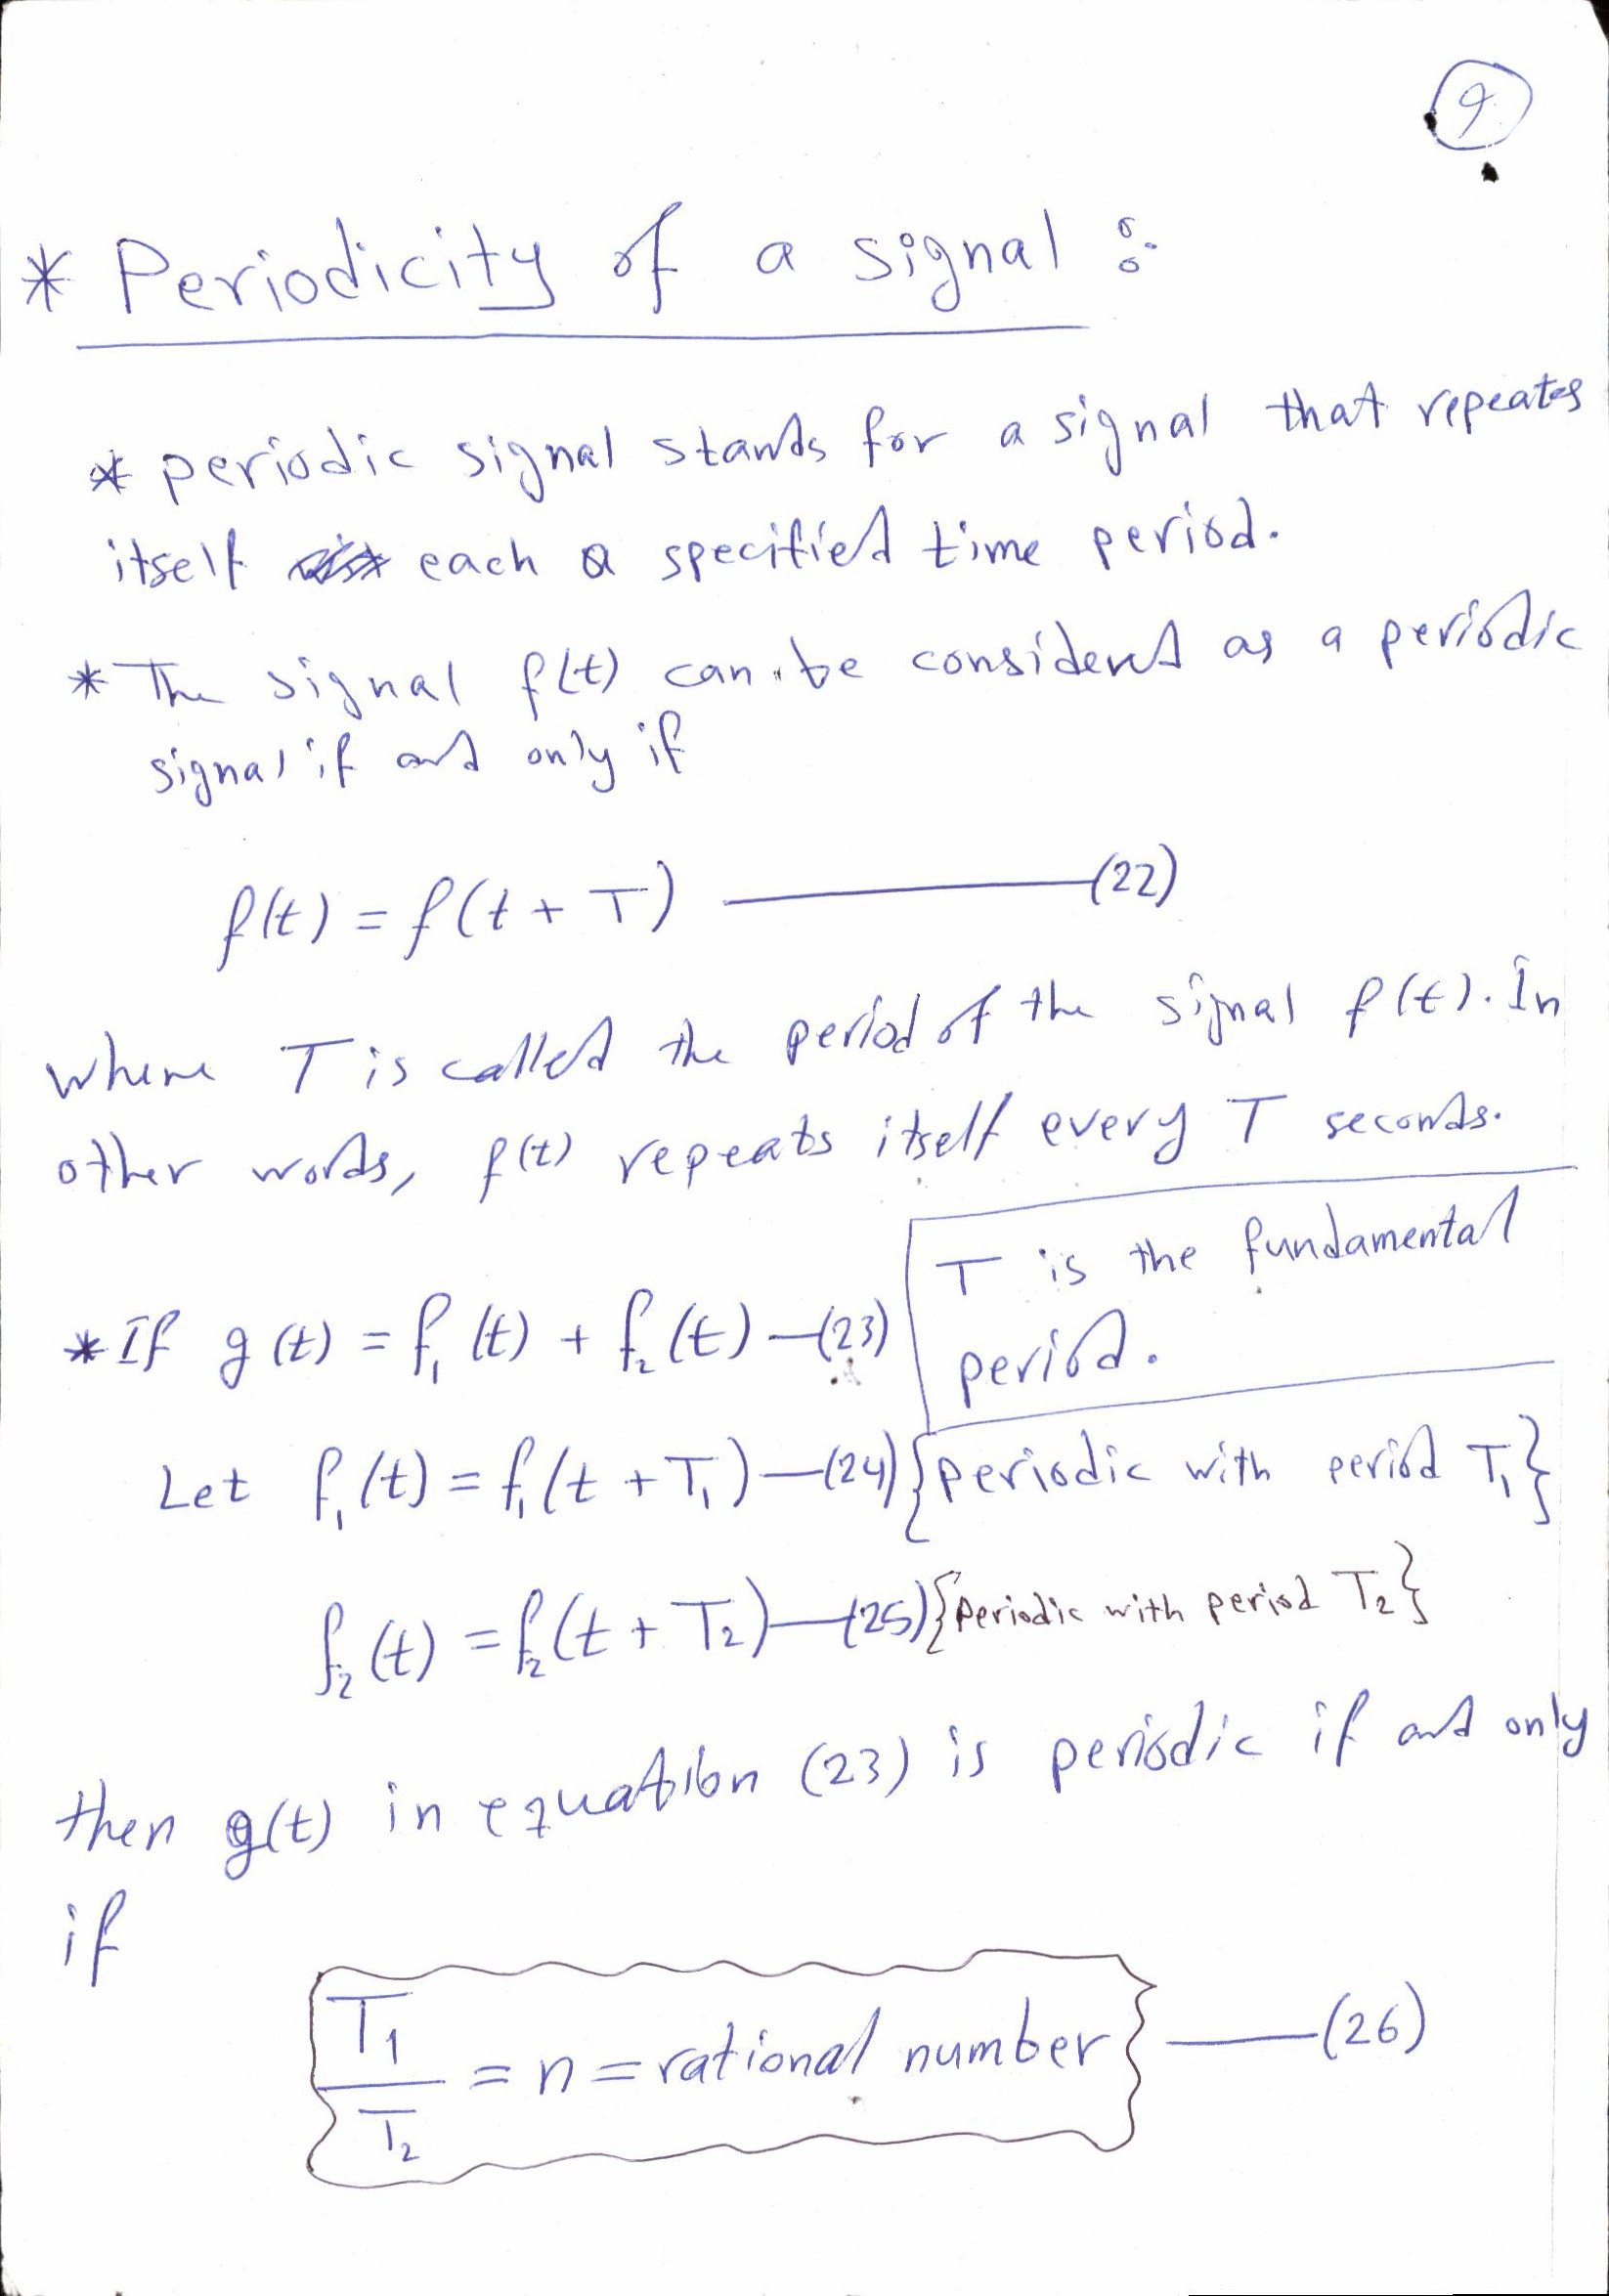 9
* Periodicity of a signal :-
* periodic signal stands for a signal that repeates
itself each a specified time period.
* The signal f(t) can be considered as a periodic
signal if and only if
f(t) = f(t + T) ——— (22)
where T is called the period of the signal f(t). In
other words, f(t) repeats itself every T seconds.
T is the fundamental
period.
* If g(t) = f₁(t) + f₂(t) — (23)
Let f₁(t) = f₁(t + T₁) — (24) {periodic with period T₁}
f₂(t) = f₂(t + T₂) — (25) {Periodic with period T₂}
then g(t) in equation (23) is periodic if and only
if
T₁/T₂ = n = rational number ——— (26)